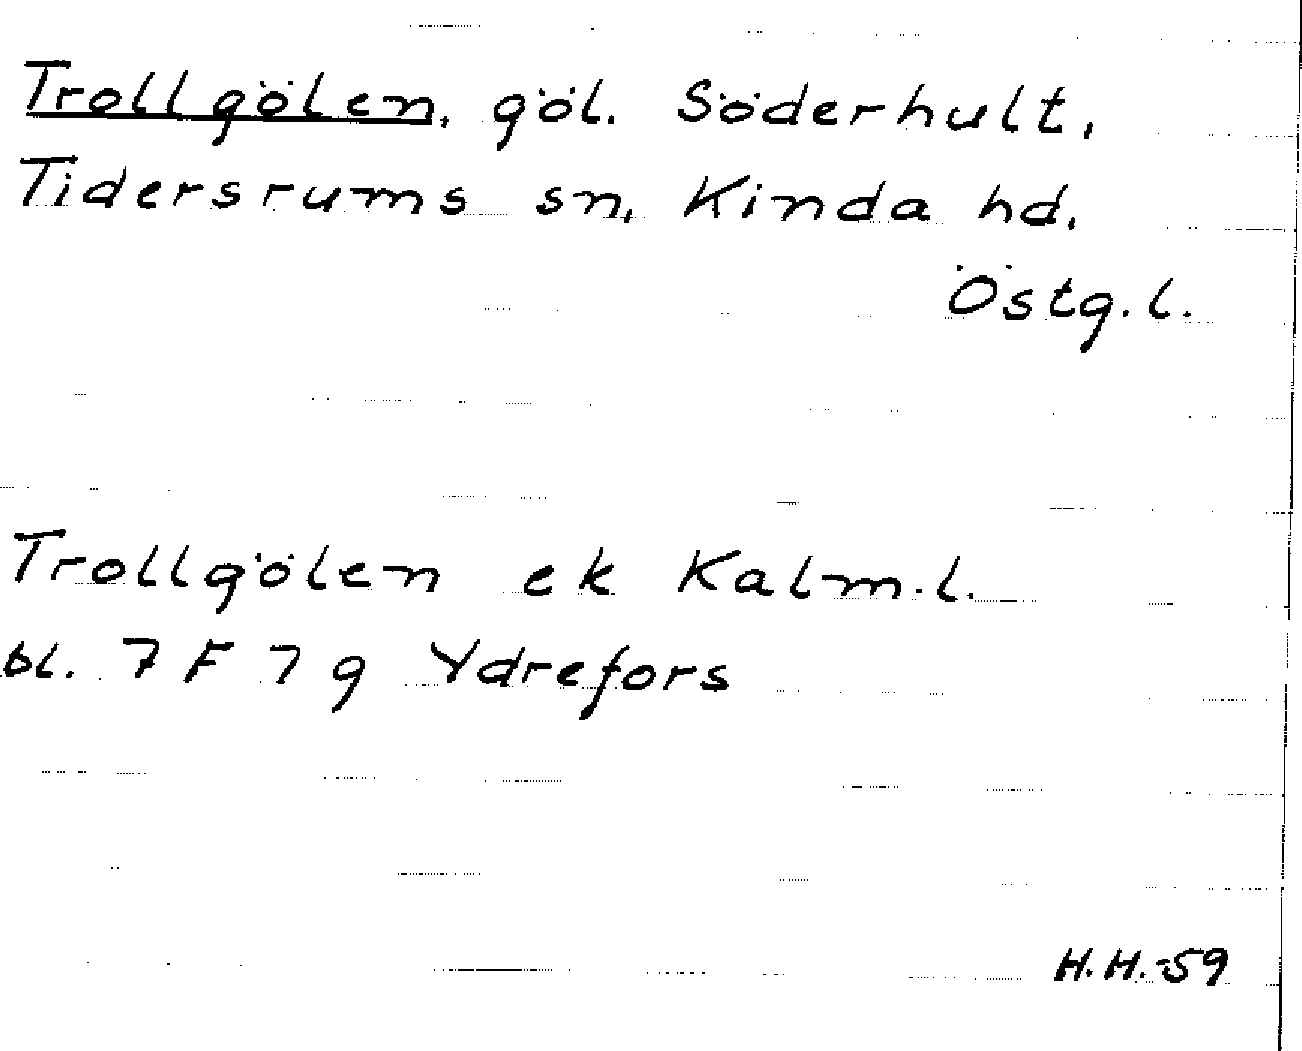 Trollgölen, göl. Söderhult,
Tidersrums sn, Kinda hd,
Östg.l.
Trollgölen ek Kalm.l.
bl. 7 F 7 g Ydrefors
H.H.-59